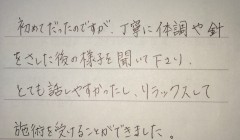 初めてだったのですが、丁寧に体調や針
をさした後の様子を聞いて下さり、
とても話しやすかったし、リラックスして
施術を受けることができました。